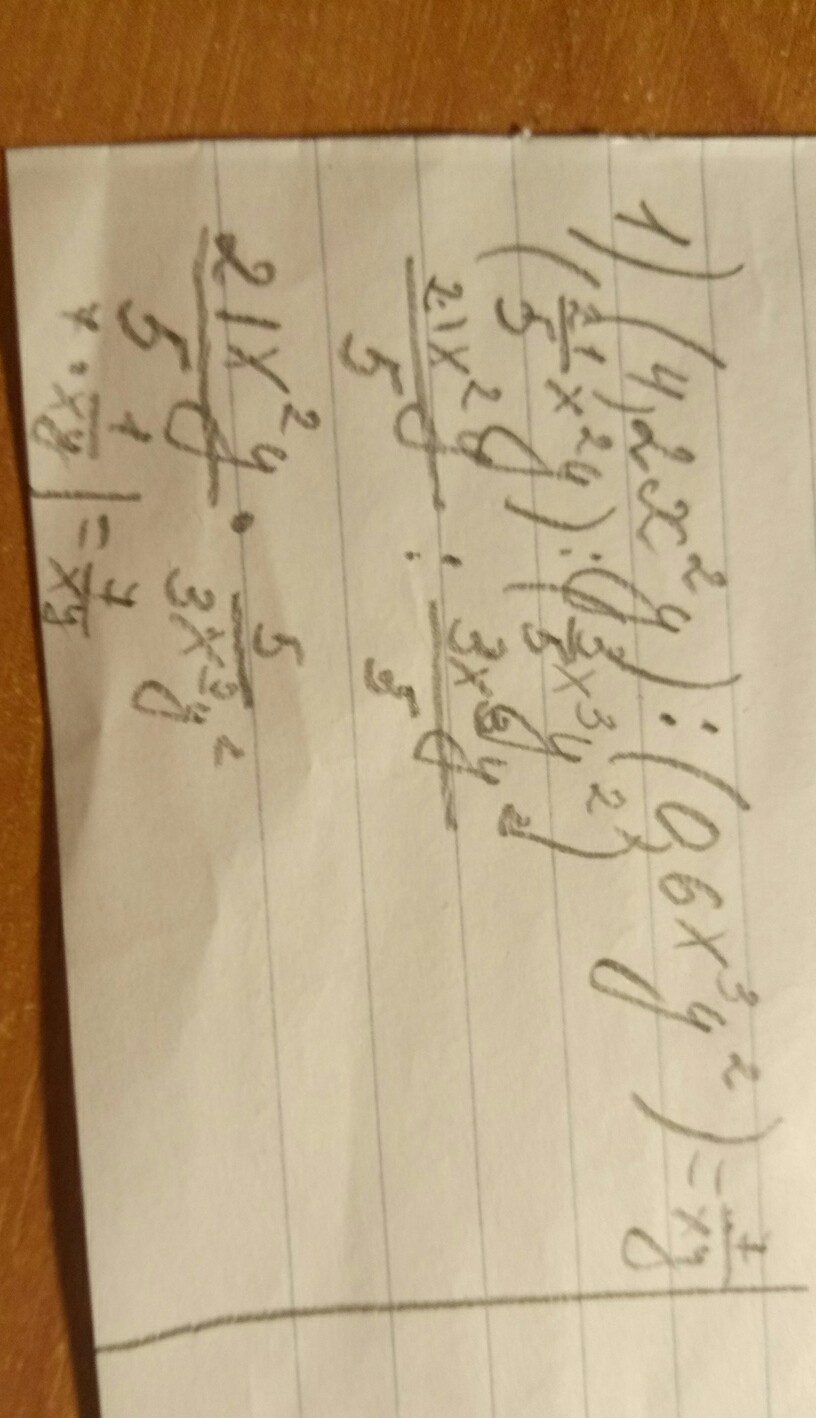 1) (4,2x²y) : (0,6x³y²) = 7/xy
(21/5 x²y) : (3/5 x³y²)
21x²y/5 : 3x³y²/5
21x²y/5 · 5/3x³y²
7 · 1/xy | = 7/xy